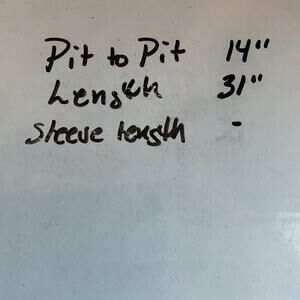 Pit to Pit 14"
Length 31"
Sleeve Length -